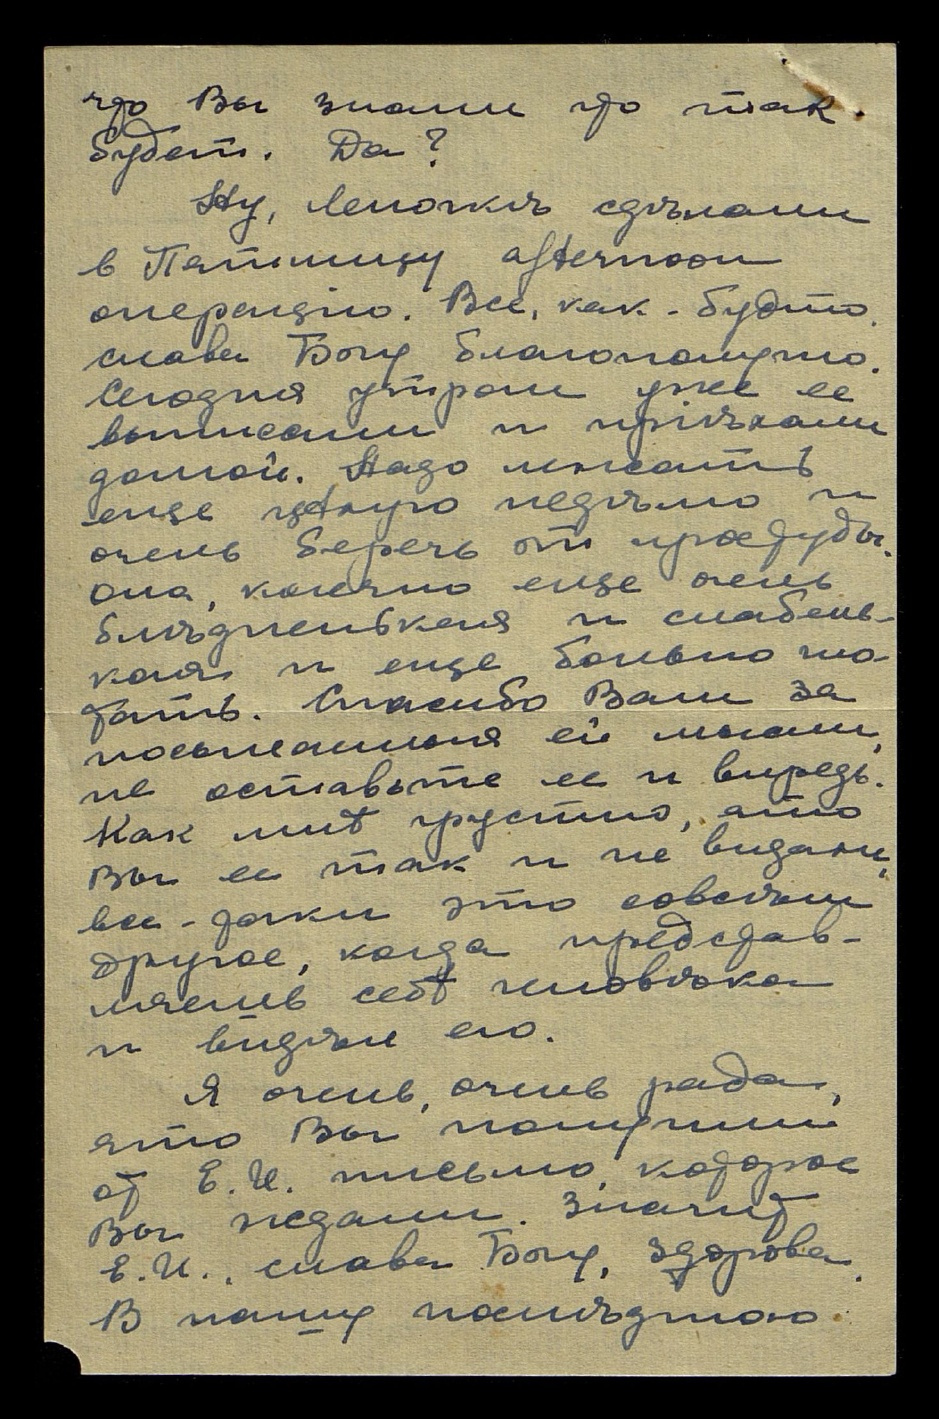 что Вы знали что так
будет. Да?
Ну, Леночкѣ сдѣлали
в Пятницу afternoon
операцію. Все, как-будто,
слава Богу благополучно.
Сегодня утром уже ее
выписали и пріѣхали
домой. Надо лежать
еще цѣлую недѣлю и
очень беречь от простуды.
Она, конечно еще очень
блѣдненькая и слабень-
кая и еще больно гло-
тать. Спасибо Вам за
посыланныя ей мысли,
не оставьте ее и впредь.
Как мнѣ грустно, что
Вы ее так и не видали,
все-таки это совсѣм
другое, когда представ-
ляешь себѣ человѣка
и видѣл его.
Я очень, очень рада,
что Вы получили
от Е.И. письмо, которое
Вы ждали. Значит
Е.И., слава Богу, здорова.
В нашу послѣднюю